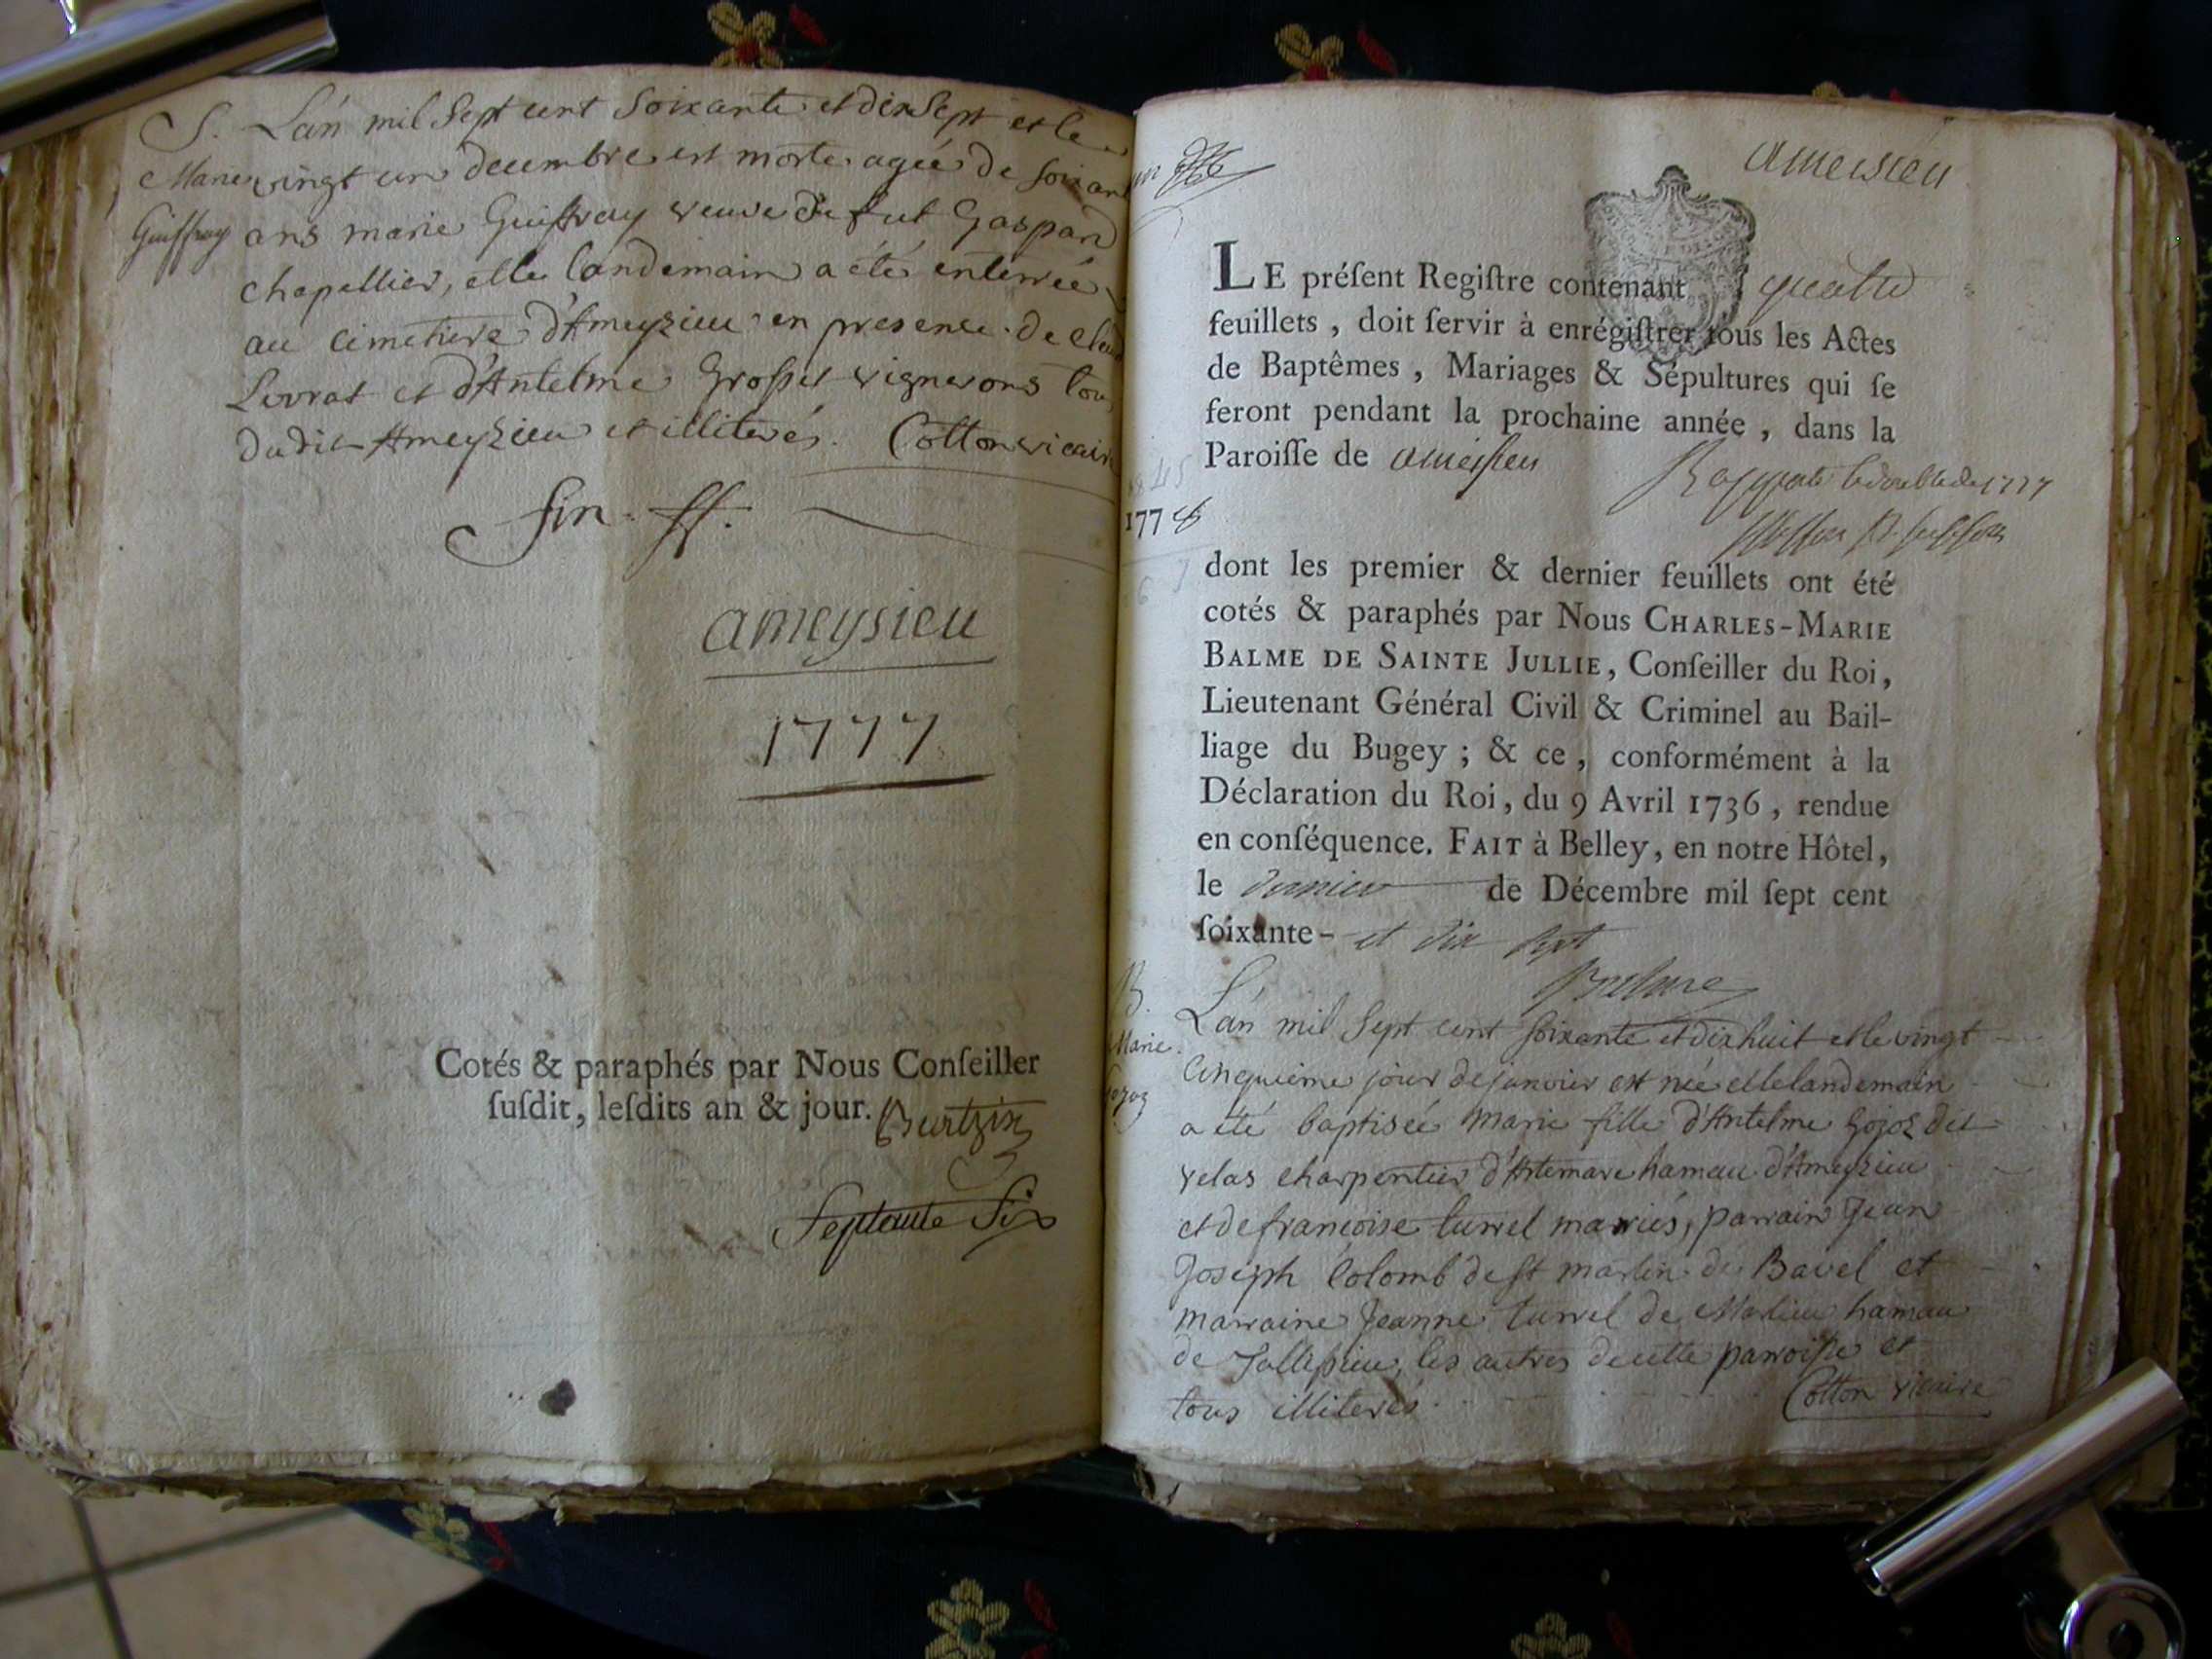 S. L'an mil Sept cent Soixante et dix Sept et le
Marie vingt un decembre est morte agée de soixan
Guiffray ans marie Guiffray veuve de fut Gaspard
Chapellier, elle landemain a été enterrée
au cimetiere d'Ameyzieu en presence de
Livrat et d'Antelme Grosset vignerons tous
dudit Ameyzieu et illiterés. Cotton vicaire
fin.
ameysieu
1777
Cotés & paraphés par Nous Conſeiller
ſuſdit, leſdits an & jour.
Septante Six
ameisieu
LE préſent Regiſtre contenant quatre
feuillets, doit ſervir à enrégiſtrer tous les Actes
de Baptêmes, Mariages & Sépultures qui ſe
feront pendant la prochaine année, dans la
Paroiſſe de ameisieu
Rapporté le double de 1777
1778
dont les premier & dernier feuillets ont été
cotés & paraphés par Nous CHARLES-MARIE
BALME DE SAINTE JULLIE, Conſeiller du Roi,
Lieutenant Général Civil & Criminel au Bail-
liage du Bugey; & ce, conformément à la
Déclaration du Roi, du 9 Avril 1736, rendue
en conſéquence. FAIT à Belley, en notre Hôtel,
le dernier de Décembre mil ſept cent
ſoixante- et dix sept
Balme
B. L'an mil Sept cent soixante et dix huit et le vingt
Marie Cinquieme jour de janvier est née et le landemain
Gojoz a été baptisée Marie fille d'Antelme Gojoz dit
velas charpentier d'Artemare hameau d'Ameyzieu
et de françoise turrel mariés, parrain Jean
Joseph Colomb de st martin de Bavel et
marraine Jeanne turrel de Marlieu hameau
de Tallissieu, les autres de cette parroisse et
tous illiterés. Cotton vicaire